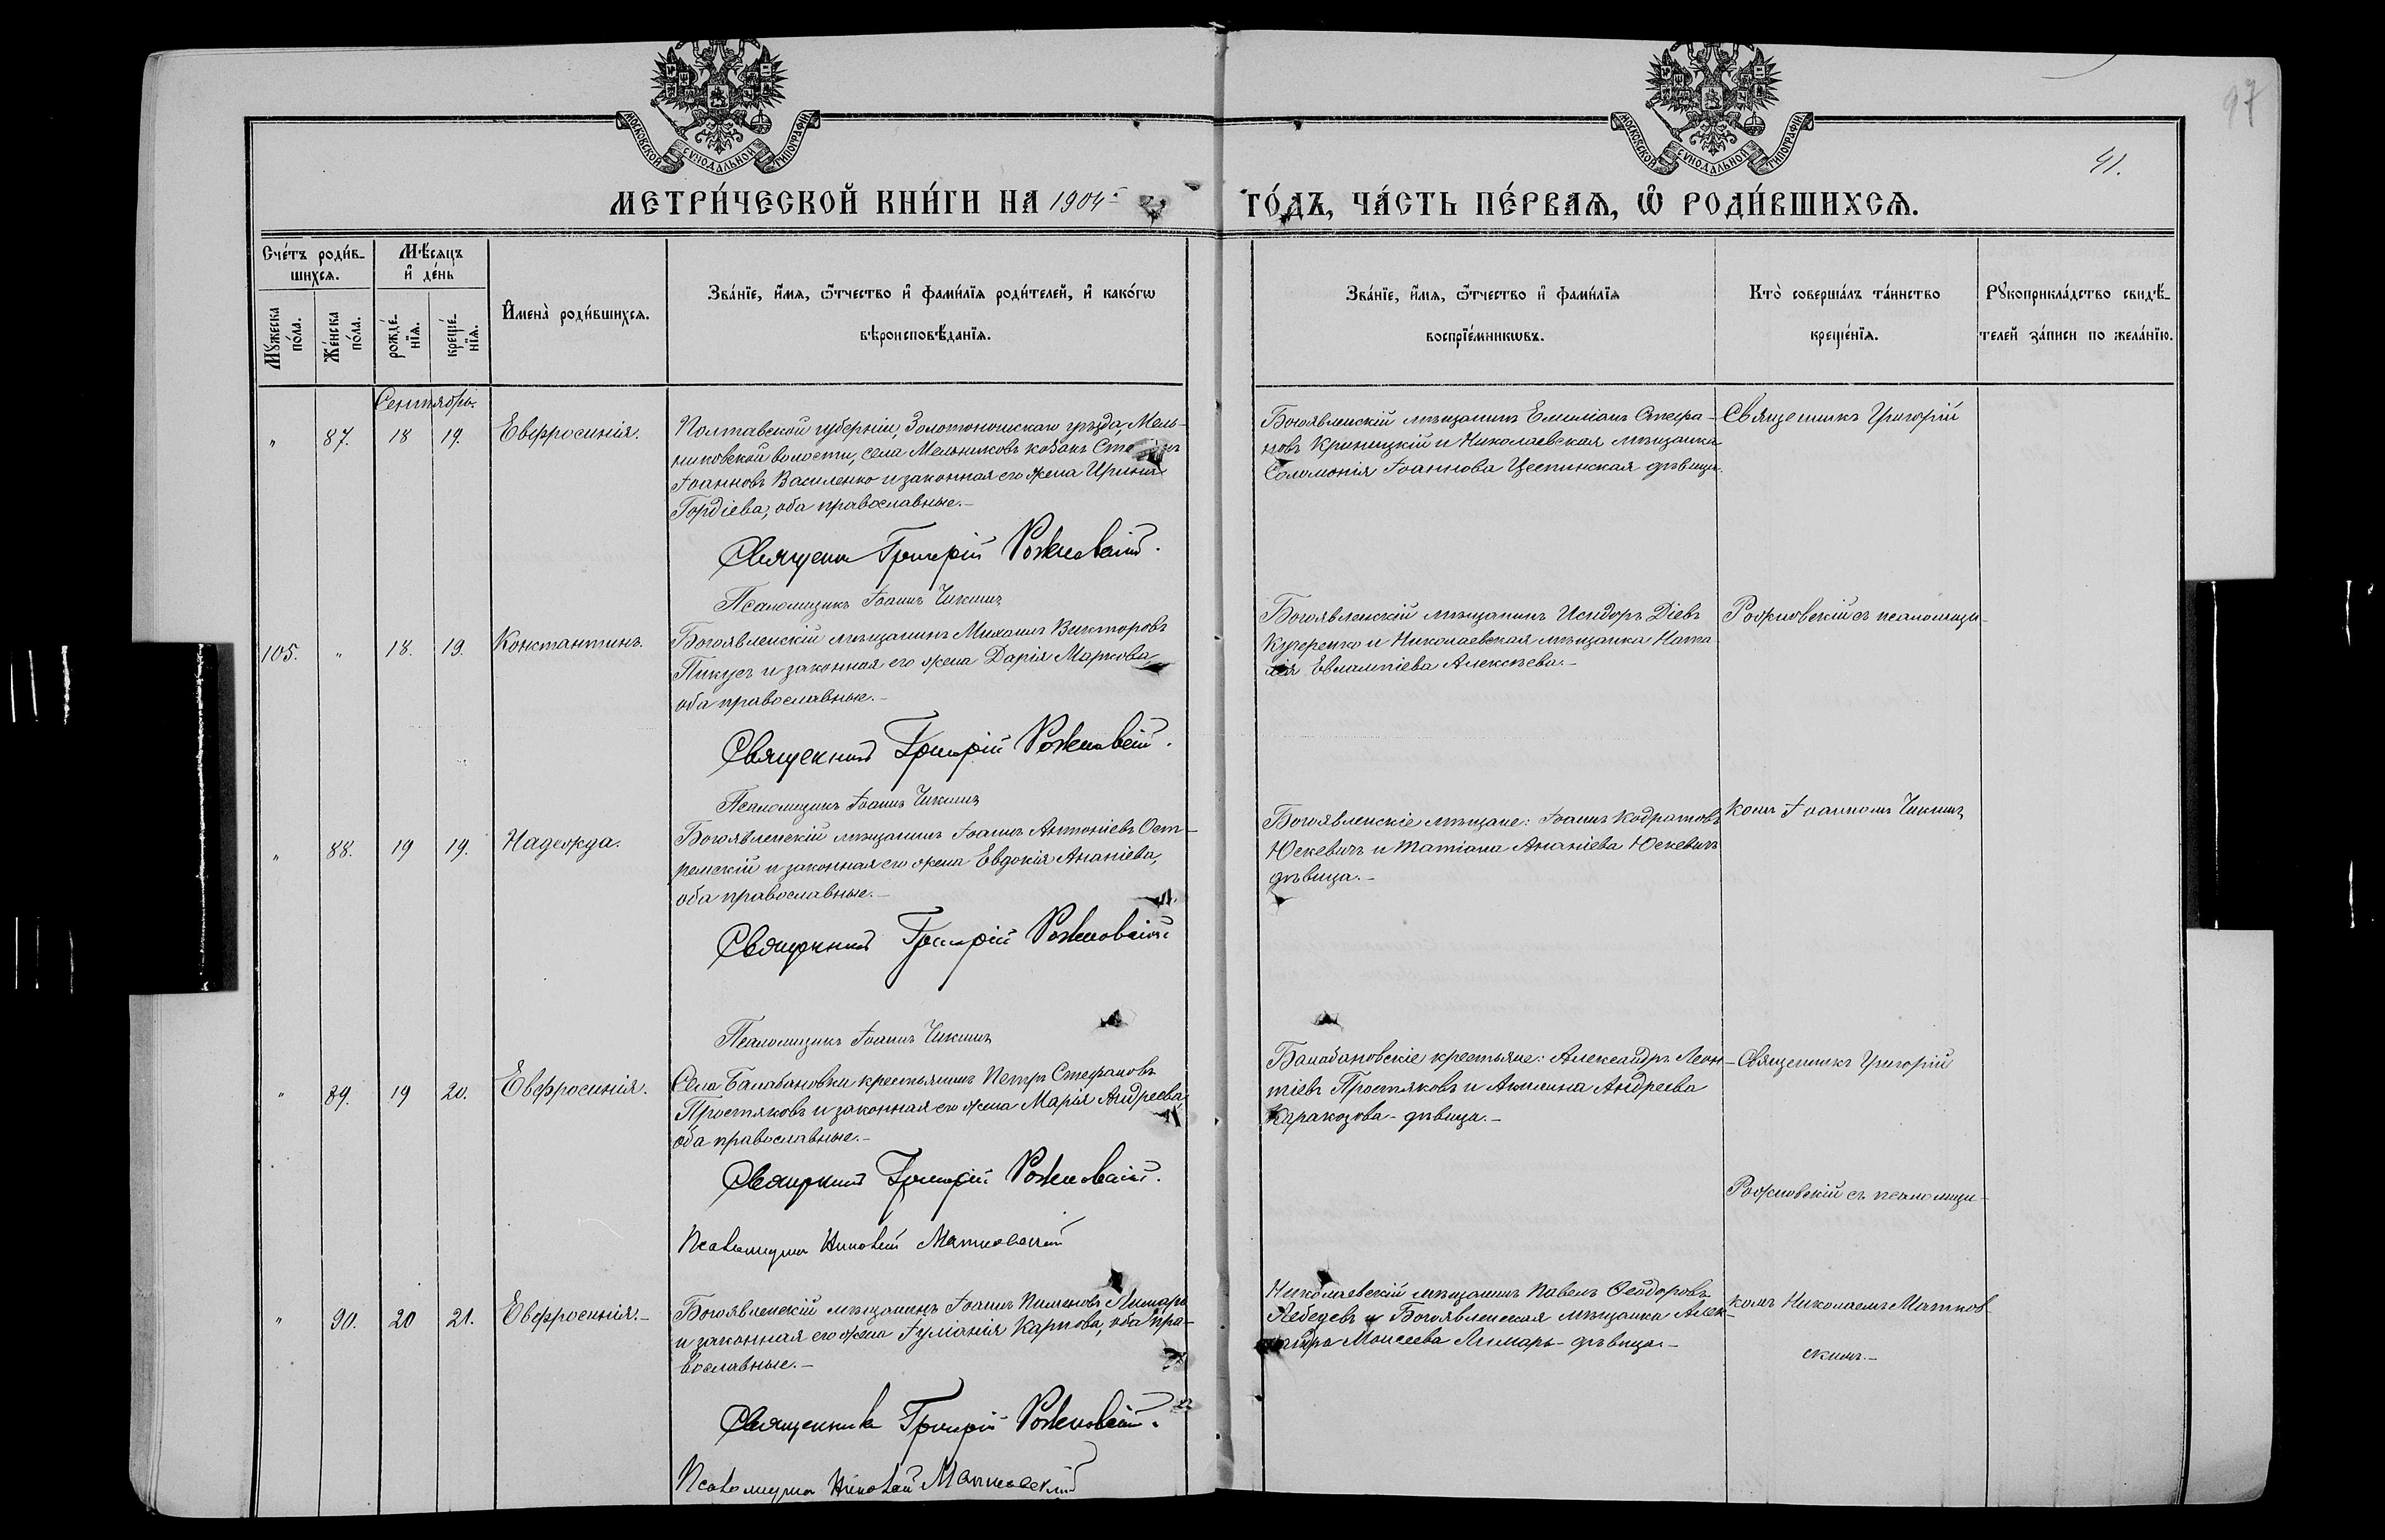 МОСКОВСКОЙ СѴНОДАЛЬНОЙ ТИПОГРАФІИ
МОСКОВСКОЙ СѴНОДАЛЬНОЙ ТИПОГРАФІИ
97
41.
МЕТРИ́ЧЕСКОЙ КНИ́ГИ НА 1904 ГО́ДЪ, ЧА́СТЬ ПЕ́РВАѦ, Ѡ РОДИ́ВШИХСѦ.
Сче́тъ роди́в-
шихсѧ.
Мꙋ́жеска по́ла.
Же́нска по́ла.
Мѣ́сяцъ
и҆ де́нь
рожде́-
нїѧ.
креще́-
нїѧ.
И҆мена̀ роди́вшихсѧ.
Зва́нїе, и҆́мѧ, ѻ҆́тчество и҆ фами́лїѧ роди́телей, и҆ како́гѡ
вѣроисповѣ́данїѧ.
Зва́нїе, и҆́мѧ, ѻ҆́тчество и҆ фами́лїѧ
воспрїе́мникѡвъ.
Кто̀ соверша́лъ та́инство
креще́нїѧ.
Рꙋкоприкла́дство свидѣ́-
телей за́писи по жела́нїю.
Сентябрь.
" 87. 18 19. Евфросинія.
Полтавской губерніи, Золотоношскаго уѣзда, Мель-
никовской волости, села Мельниковъ козакъ
Іоанновъ Василенко и законная его жена Ирина
Гордіева, оба православные.-
Священникъ Григорій Рожновскій.
Псаломщикъ Іоаннъ Чикинъ
Богоявленскій мѣщанинъ Емиліанъ Стефа-
новъ Криницкій и Николаевская мѣщанка
Соломонія Іоаннова Цеспинская дѣвица.
Священникъ Григорій
105. " 18. 19. Константинъ.
Богоявленскій мѣщанинъ Михаилъ Викторовъ
Пикусъ и законная его жена Дарія Маркова,
оба православные.-
Священникъ Григорій Рожновскій.
Псаломщикъ Іоаннъ Чикинъ
Богоявленскій мѣщанинъ Исидоръ Діевъ
Кучеренко и Николаевская мѣщанка Ната-
лія Евлампіева Алексѣева.-
Рожновскій съ псаломщи-
" 88. 19 19. Надежда.
Богоявленскій мѣщанинъ Іоаннъ Антоніевъ Ост-
ремскій и законная его жена Евдокія Ананіева,
оба православные.-
Священникъ Григорій Рожновскій
Псаломщикъ Іоаннъ Чикинъ
Богоявленскіе мѣщане: Іоаннъ Кодратовъ
Юскевичъ и Татіана Ананіева Юскевичъ
дѣвица.-
комъ Іоанномъ Чикинъ
" 89. 19 20. Евфросинія.
Села Балабановки крестьянинъ Петръ Стефановъ
Простяковъ и законная его жена Марія Андреева,
оба православные.-
Священникъ Григорій Рожновскій.
Псаломщикъ Николай Матковскій
Балабановскіе крестьяне: Александръ Леон-
тіевъ Простяковъ и Акилина Андреева
Каракозова - дѣвица.-
Священникъ Григорій
Рожновскій съ псаломщи-
" 90. 20 21. Евфросинія.-
Богоявленскій мѣщанинъ Іоаннъ Пименовъ Лимарь
и законная его жена Іуліанія Карпова, оба пра-
вославные.-
Священникъ Григорій Рожновскій.
Псаломщикъ Николай Матковскій
Николаевскій мѣщанинъ Павелъ Ѳеодоровъ
Лебедевъ и Богоявленская мѣщанка Алек-
Моисеева Лимарь - дѣвица.-
комъ Николаемъ Матков-
скимъ.-